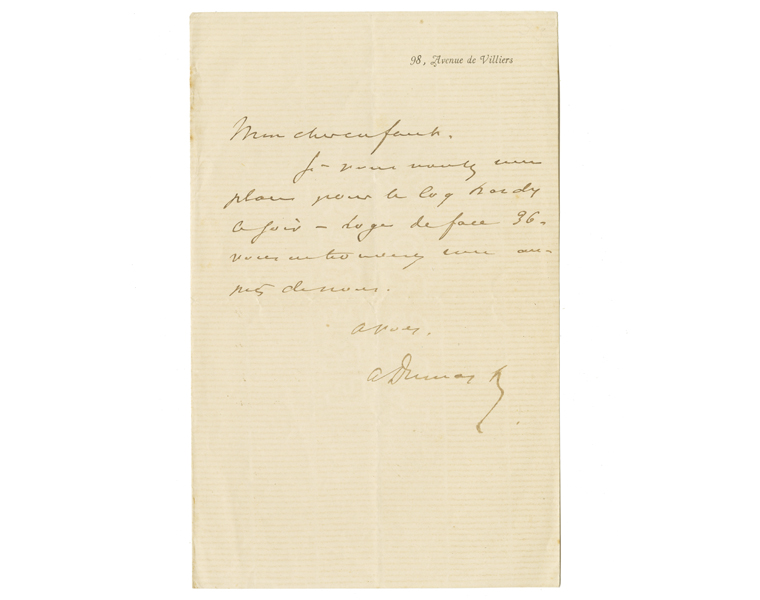 98, Avenue de Villiers
Mon cher enfant.
Si vous voulez une
place pour le Coq hardy
ce soir – loge de face 36.
vous en trouverez une au-
près de nous.
a vous.
A Dumas f